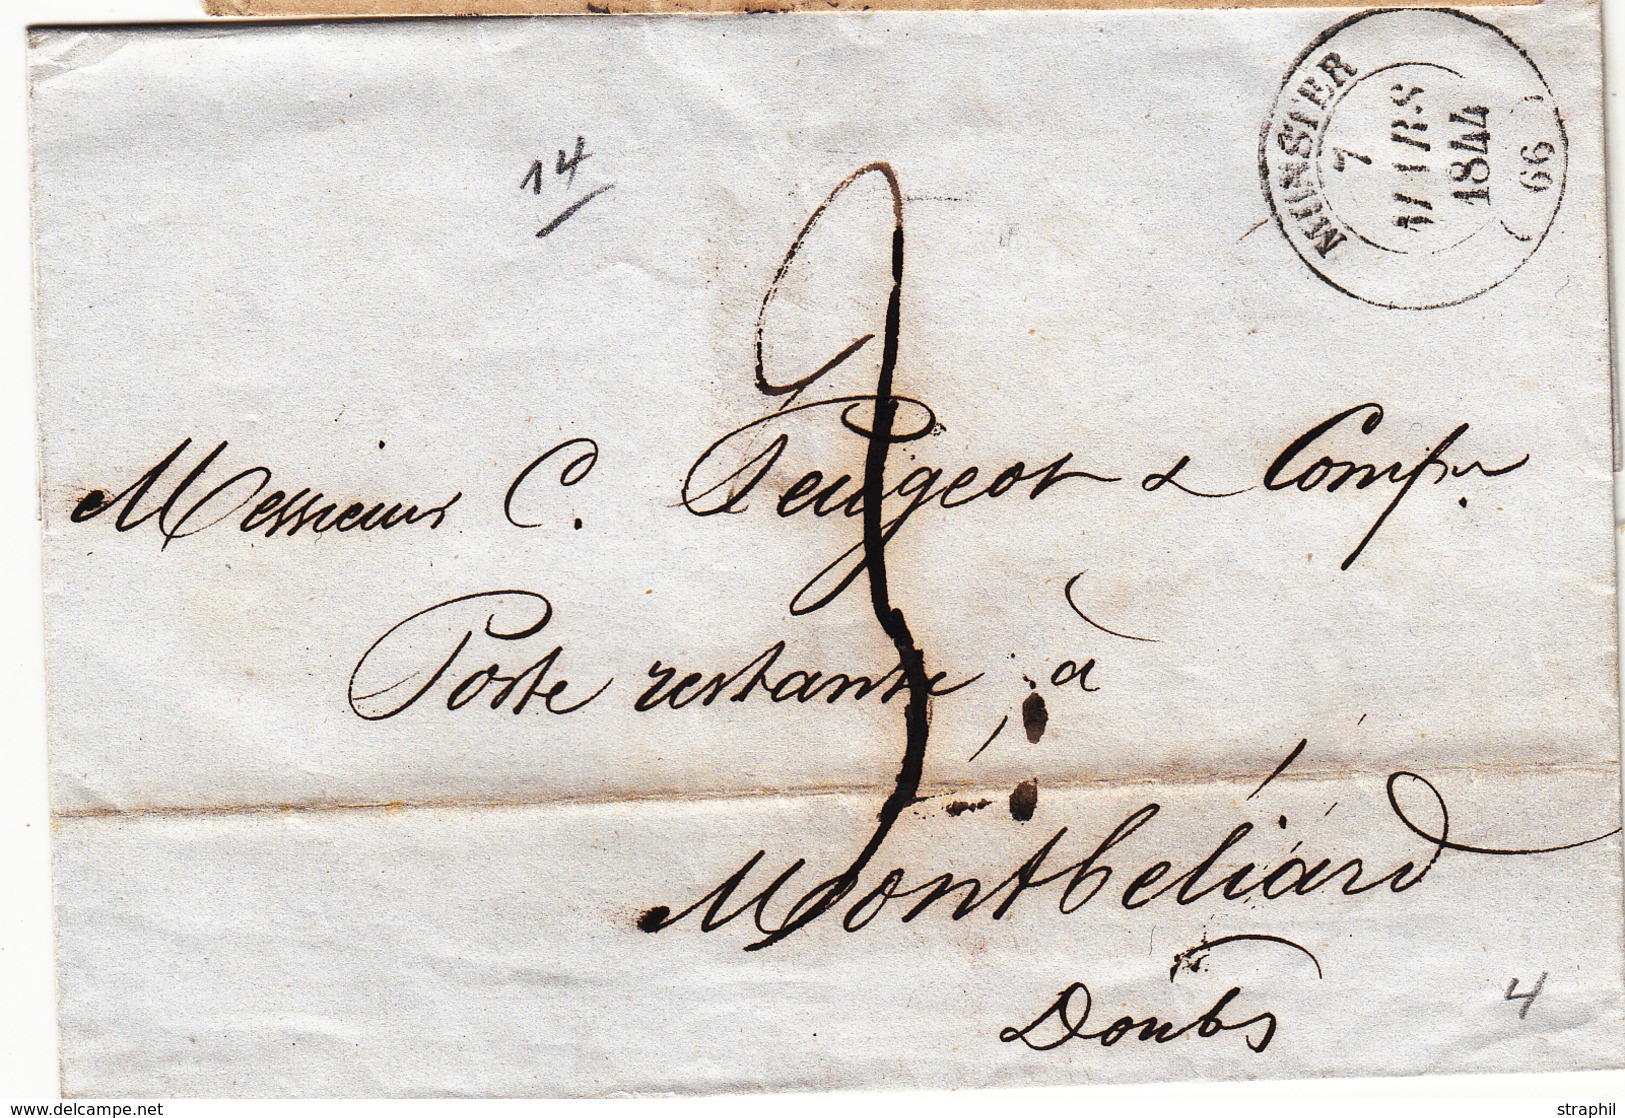 MUNSTER
7
MARS
1844
(66)
14
3
Messieurs C. Peugeot & Compie.
Poste restante, à
Montbéliard
Doubs
4
www.delcampe.net
straphil